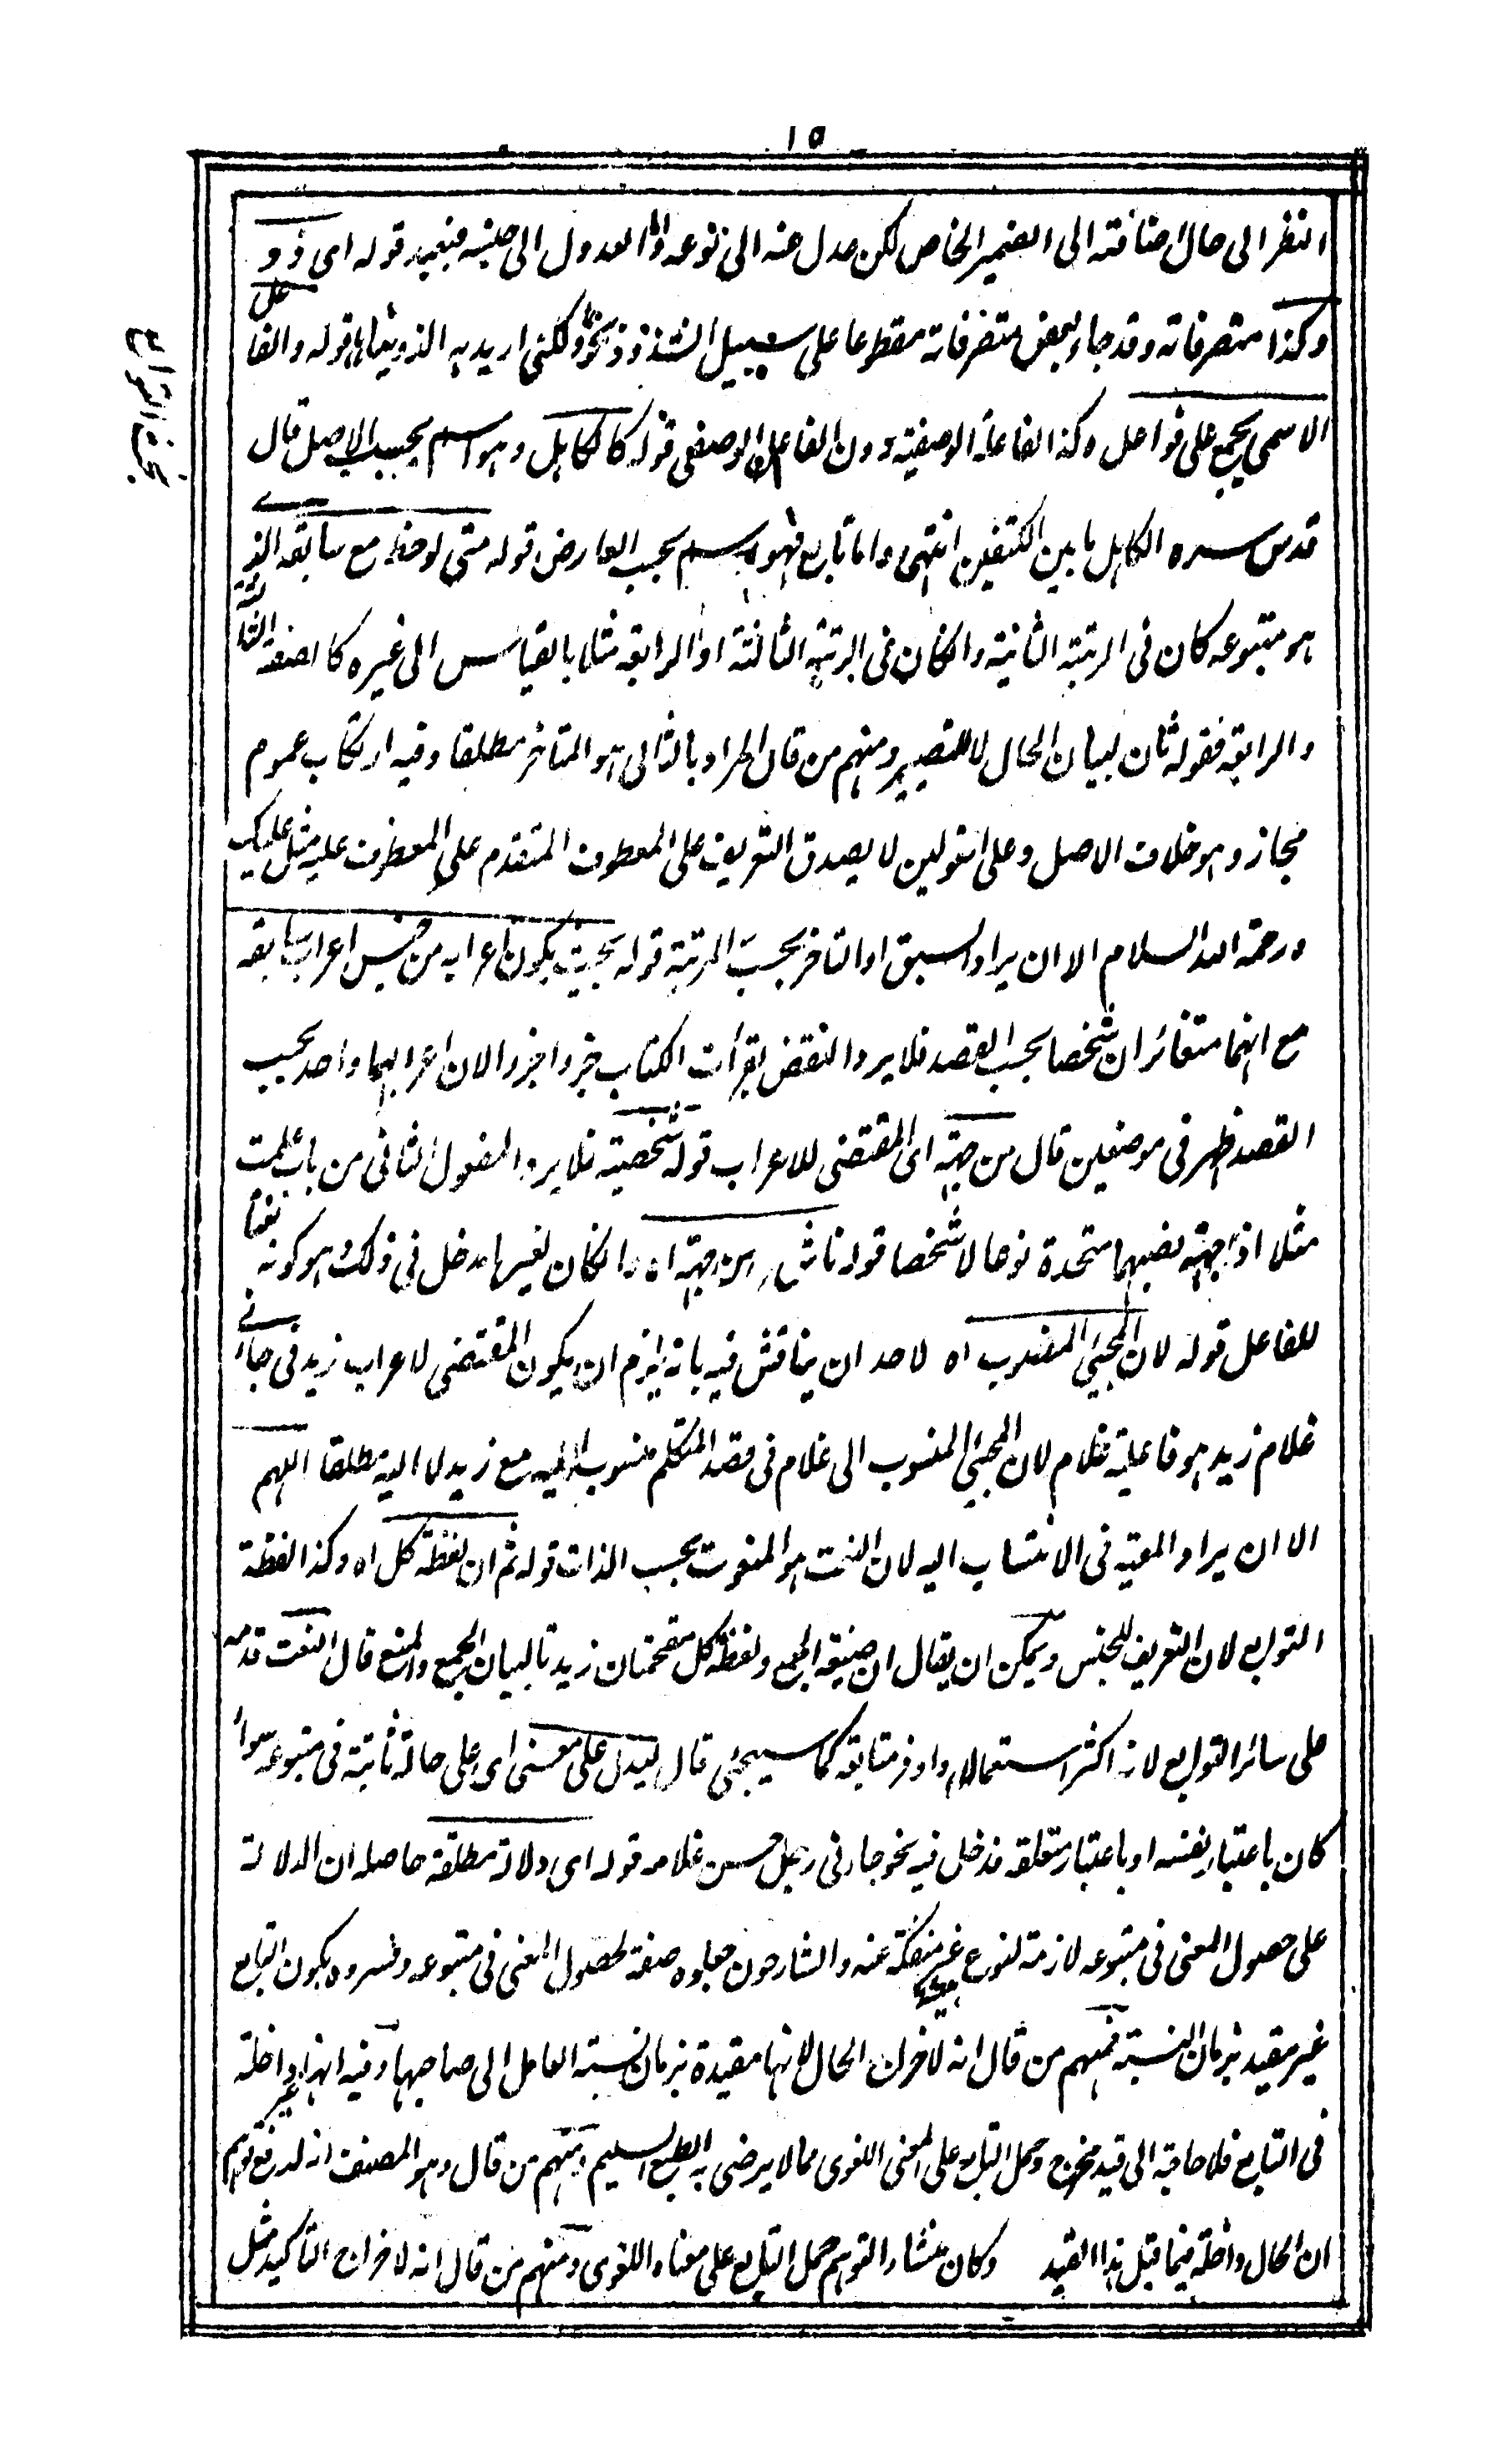 ١٥
النظر الى حال اضافته الى الضمير الخاص لكن عدل عنه الى نوعه واما العدول الى جنسه فبعيد قوله اى ذو و
وكذا متصرفاته وقد جاء بعض متصرفاته مقطوعا على سبيل الشذوذ نحو ولكنى اريد به الذوينا قوله والفاعل
الاسمى يجمع على فواعل وكذا الفاعلة الوصفية دون الفاعل الوصفى قوله كالكاهل وهو اسم بحسب الاصل قال
قدس سره الكاهل ما بين الكتفين انتهى واما تابع فهو اسم بحسب العارض قوله متى لوحظ مع سابقه الذى
هو متبوعه كان فى الرتبة الثانية وان كان فى الرتبة الثالثة او الرابعة مثلا بالقياس الى غيره كالصفة الثالثة
والرابعة فقوله ثان لبيان الحال لا للتقييد ومنهم من قال المراد بالثانى هو المتاخر مطلقا وفيه ارتكاب عموم
مجاز وهو خلاف الاصل وعلى القولين لا يصدق التعريف على المعطوف المتقدم على المعطوف عليه مثل عليك
ورحمة الله السلام الا ان يراد السبق او التاخر بحسب الرتبة قوله بحيث يكون اعرابه من جنس اعراب سابقه
مع انهما متغائران شخصا بحسب القصد فلا يرد النقض بقرأت الكتاب جزوا جزوا لان اعرابهما واحد بحسب
القصد ظهر فى موضعين قال من جهة اى المقتضى للاعراب قوله شخصية فلا يرد المفعول الثانى من باب علمت
مثلا اذ جهة نصبهما متحدة نوعا لا شخصا قوله ناش من جهة اه وان كان لغيرها مدخل فى ذلك وهو كونه نعتا
للفاعل قوله لان المجيئ المنسوب اه لاحد ان يناقش فيه بانه يلزم ان يكون المقتضى لاعراب زيد فى جاءنى
غلام زيد هو فاعلية غلام لان المجيئ المنسوب الى غلام فى قصد المتكلم منسوب اليه مع زيد لا اليه مطلقا اللهم
الا ان يراد المعية فى الانتساب اليه لان النعت هو المنعوت بحسب الذات قوله ثم ان لفظة كل اه وكذا لفظة
التوابع لان التعريف للجنس ويمكن ان يقال ان صيغة الجمع ولفظة كل مقحمتان زيدتا لبيان الجمع والمنع قال النعت قدمه
على سائر التوابع لانه اكثر استعمالا واوفر متابعة كما سيجئ قال ليدل على معنى اى على حالة ثابتة فى متبوعه سواء
كان باعتبار نفسه او باعتبار متعلقه فدخل فيه نحو جاءنى رجل حسن غلامه قوله اى دلالة مطلقة حاصله ان الدلالة
على حصول المعنى فى متبوعه لازمة لنوع غير منفكة عنه والشارحون جعلوه صفة لحصول المعنى فى متبوعه وفسروه بكون التابع
غير مقيد بزمان النسبة فمنهم من قال انه لاخراج الحال لانها مقيدة بزمان نسبة العامل الى صاحبها وفيه انها غير داخلة
فى التابع فلا حاجة الى قيد مخرج وحمل التابع على المعنى اللغوى مما لا يرضى به الطبع السليم ومنهم من قال وهو المصنف انه لدفع توهم
ان الحال داخلة فيما قبل هذا القيد وكان منشاء التوهم حمل التابع على معناه اللغوى ومنهم من قال انه لاخراج التأكيد مثل
بحث التوابع